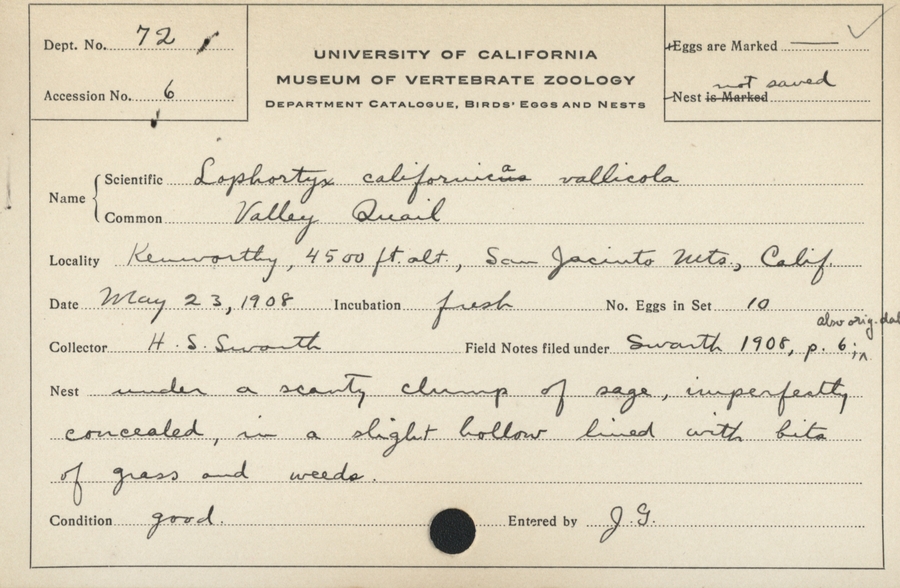 Dept. No. 72
Accession No. 6
UNIVERSITY OF CALIFORNIA
MUSEUM OF VERTEBRATE ZOOLOGY
DEPARTMENT CATALOGUE, BIRDS' EGGS AND NESTS
Eggs are Marked —
not saved
Nest is Marked
Name
Scientific Lophortyx californicusa vallicola
Common Valley Quail
Locality Kenworthy, 4500 ft. alt., San Jacinto Mts., Calif.
Date May 23, 1908 Incubation fresh No. Eggs in Set 10
also orig. dat
Collector H. S. Swarth Field Notes filed under Swarth 1908, p. 6; in
Nest under a scanty clump of sage, imperfectly
concealed, in a slight hollow lined with bits
of grass and weeds.
Condition good. Entered by J.G.